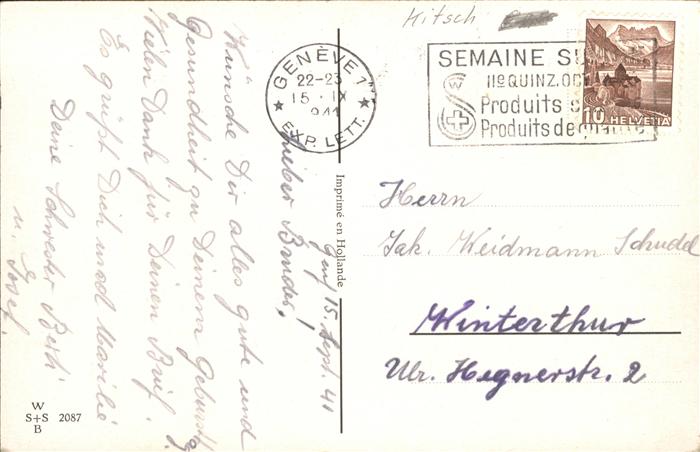 Kitsch
GENÈVE 1
22-23
15. IX
941
EXP. LETT.
SEMAINE SU
IIº QUINZ. OCT
Produits
Produits de
10 HELVETIA
Genf 15. Sept. 41
Lieber Bruder!
Wünsche Dir alles gute und
Gesundheit zu Deinem Geburtstag.
Vielen Dank für Deinen Brief.
Es grüßt Dich und
Deine Schwester Berti
u. Josef.
Imprimé en Hollande
Herrn
Jak. Weidmann Schudel
Winterthur
Ulr. Hegnerstr. 2
W
S+S 2087
B